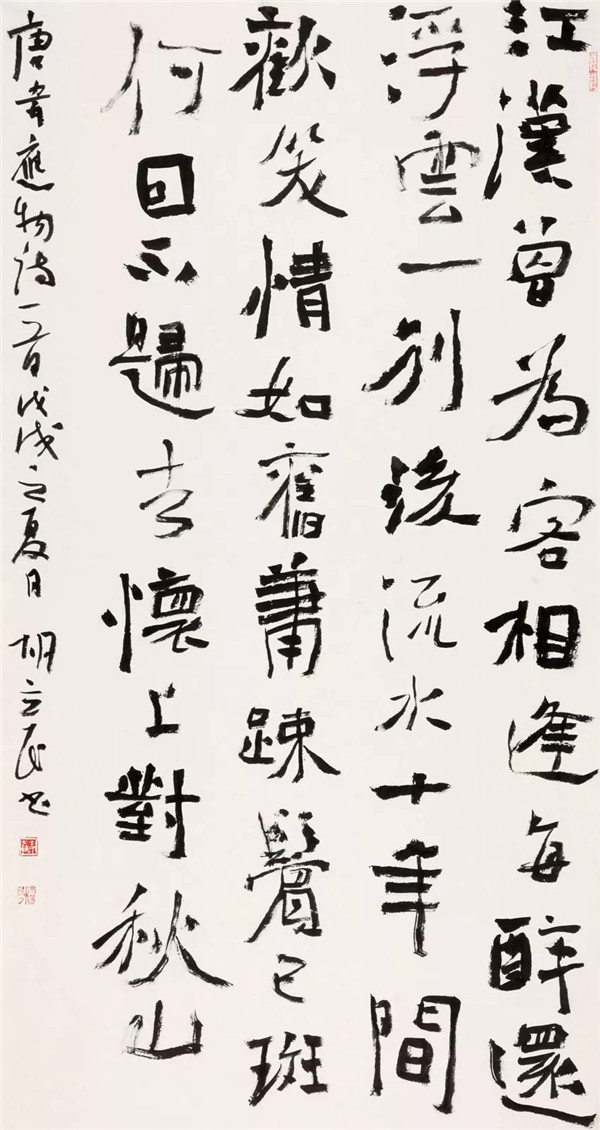 江漢曾為客相逢每醉還
浮雲一別後流水十年間
歡笑情如舊蕭踈鬢已斑
何囙不歸去懷上對秋山
唐韋應物詩一首戊戌之夏月胡立民書